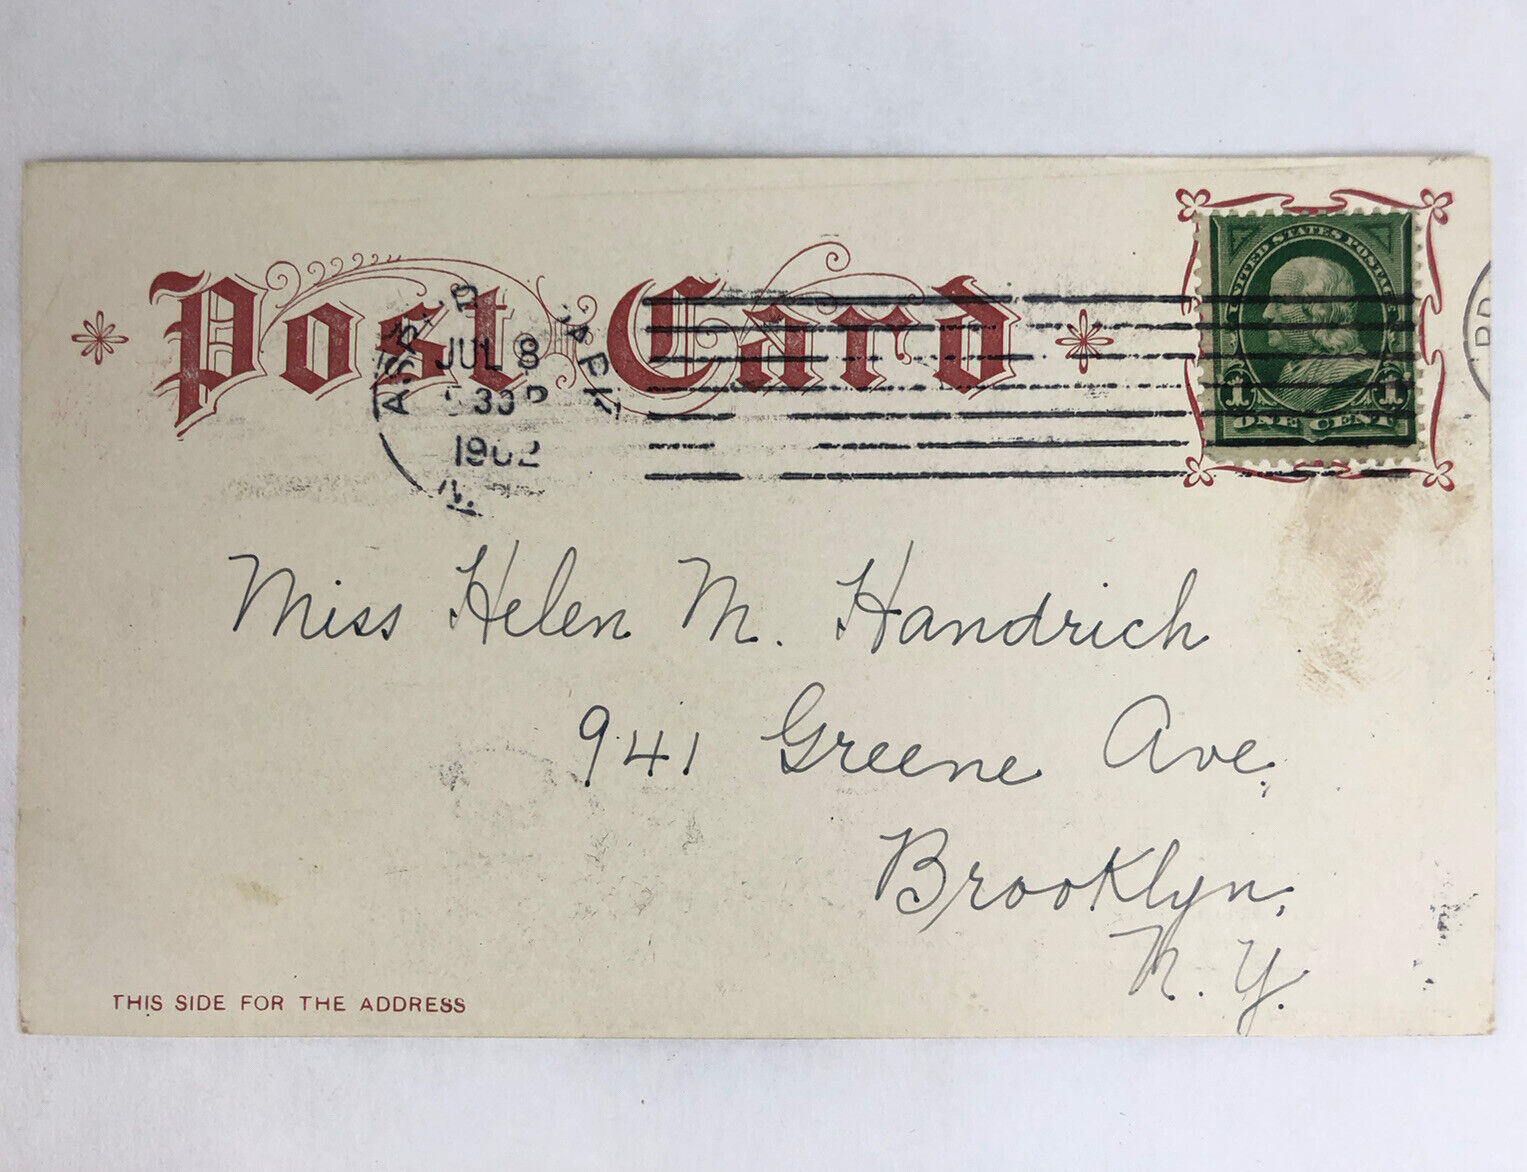 Post Card
UNITED STATES POSTAGE
1 1
ONE CENT
JUL 8
1902
Miss Helen M. Handrich
941 Greene Ave.,
Brooklyn,
N. Y.
THIS SIDE FOR THE ADDRESS